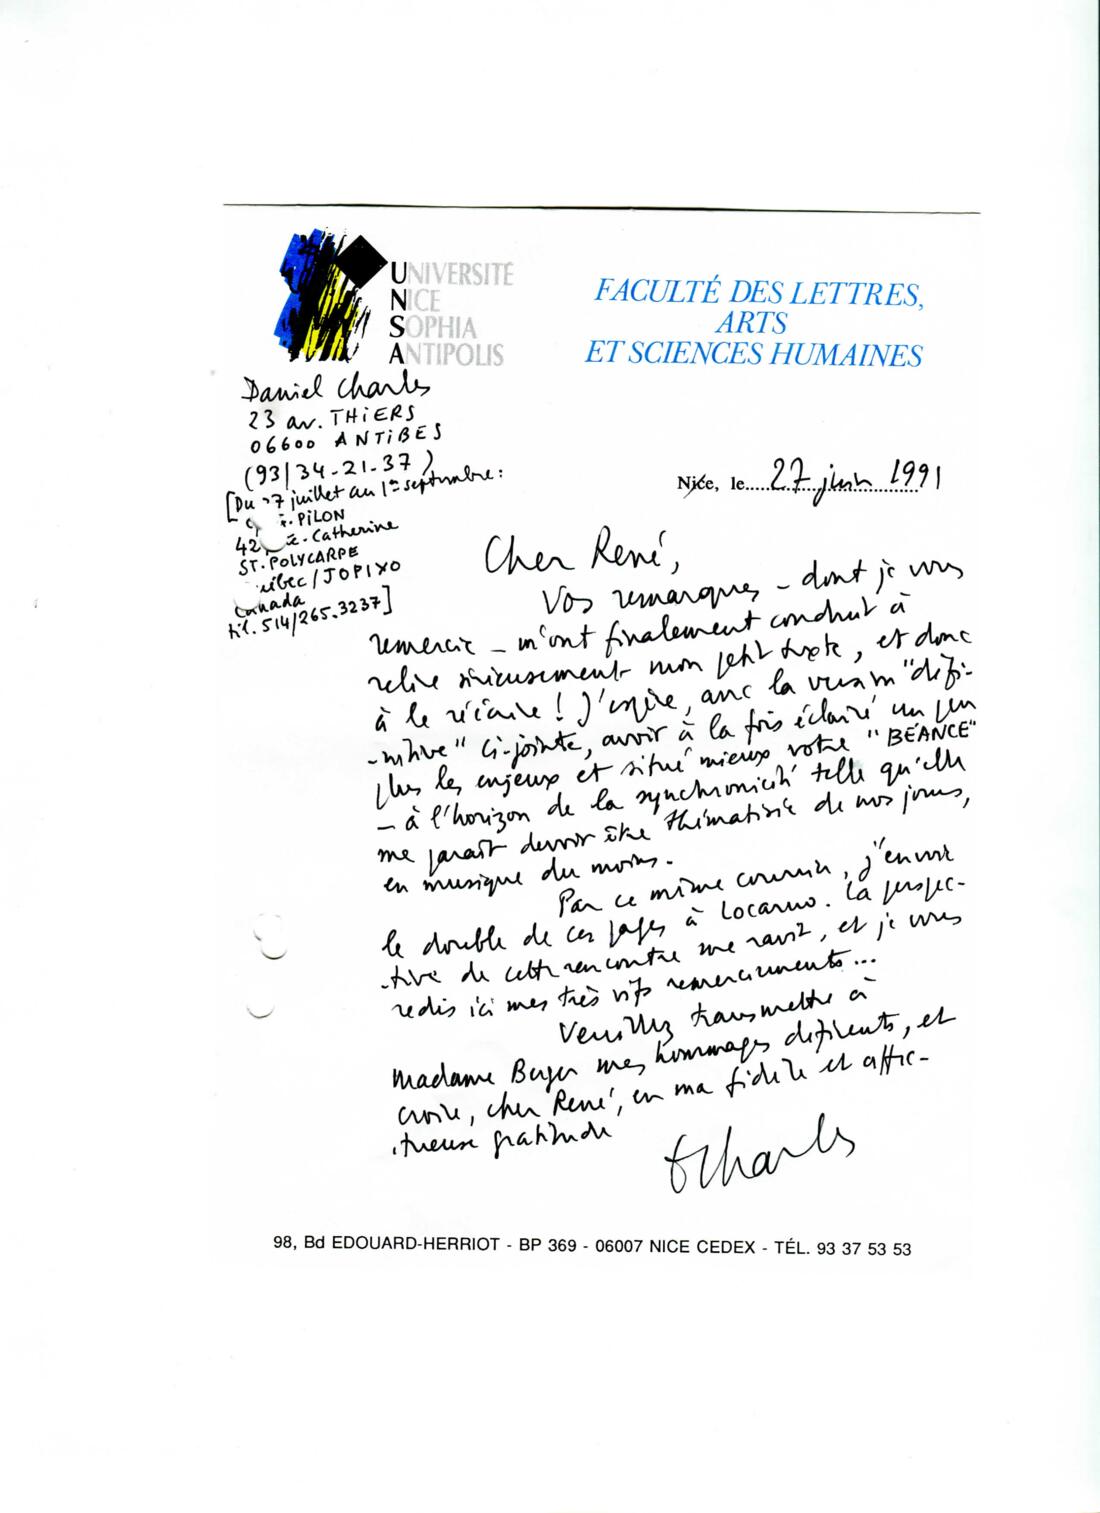 UNIVERSITÉ
NICE
SOPHIA
ANTIPOLIS
FACULTÉ DES LETTRES,
ARTS
ET SCIENCES HUMAINES
Daniel Charles
23 av. THIERS
06600 ANTIBES
(93/34-21-37)
[Du 27 juillet au 1er septembre:
PILON
42 Catherine
ST. POLYCARPE
/JOP1XO
Canada
tél. 514/265.3237]
Nice, le 27 juin 1991
Cher René,
Vos remarques – dont je vous
remercie – m'ont finalement conduit à
relire sérieusement mon petit texte, et donc
à le réécrire ! J'espère, avec la version "défi-
-nitive" ci-jointe, avoir à la fois éclairé un peu
plus les enjeux et situé mieux votre "BÉANCE"
– à l'horizon de la synchronicité telle qu'elle
me paraît devoir être thématisée de nos jours,
en musique du moins.
Par ce même courrier, j'envoie
le double de ces pages à Locarno. La perspec-
-tive de cette rencontre me ravit, et je vous
redis ici mes très vifs remerciements...
Veuillez transmettre à
Madame Berger mes hommages déférents, et
croire, cher René, en ma fidèle et affec-
-tueuse gratitude
DCharles
98, Bd EDOUARD-HERRIOT - BP 369 - 06007 NICE CEDEX - TÉL. 93 37 53 53